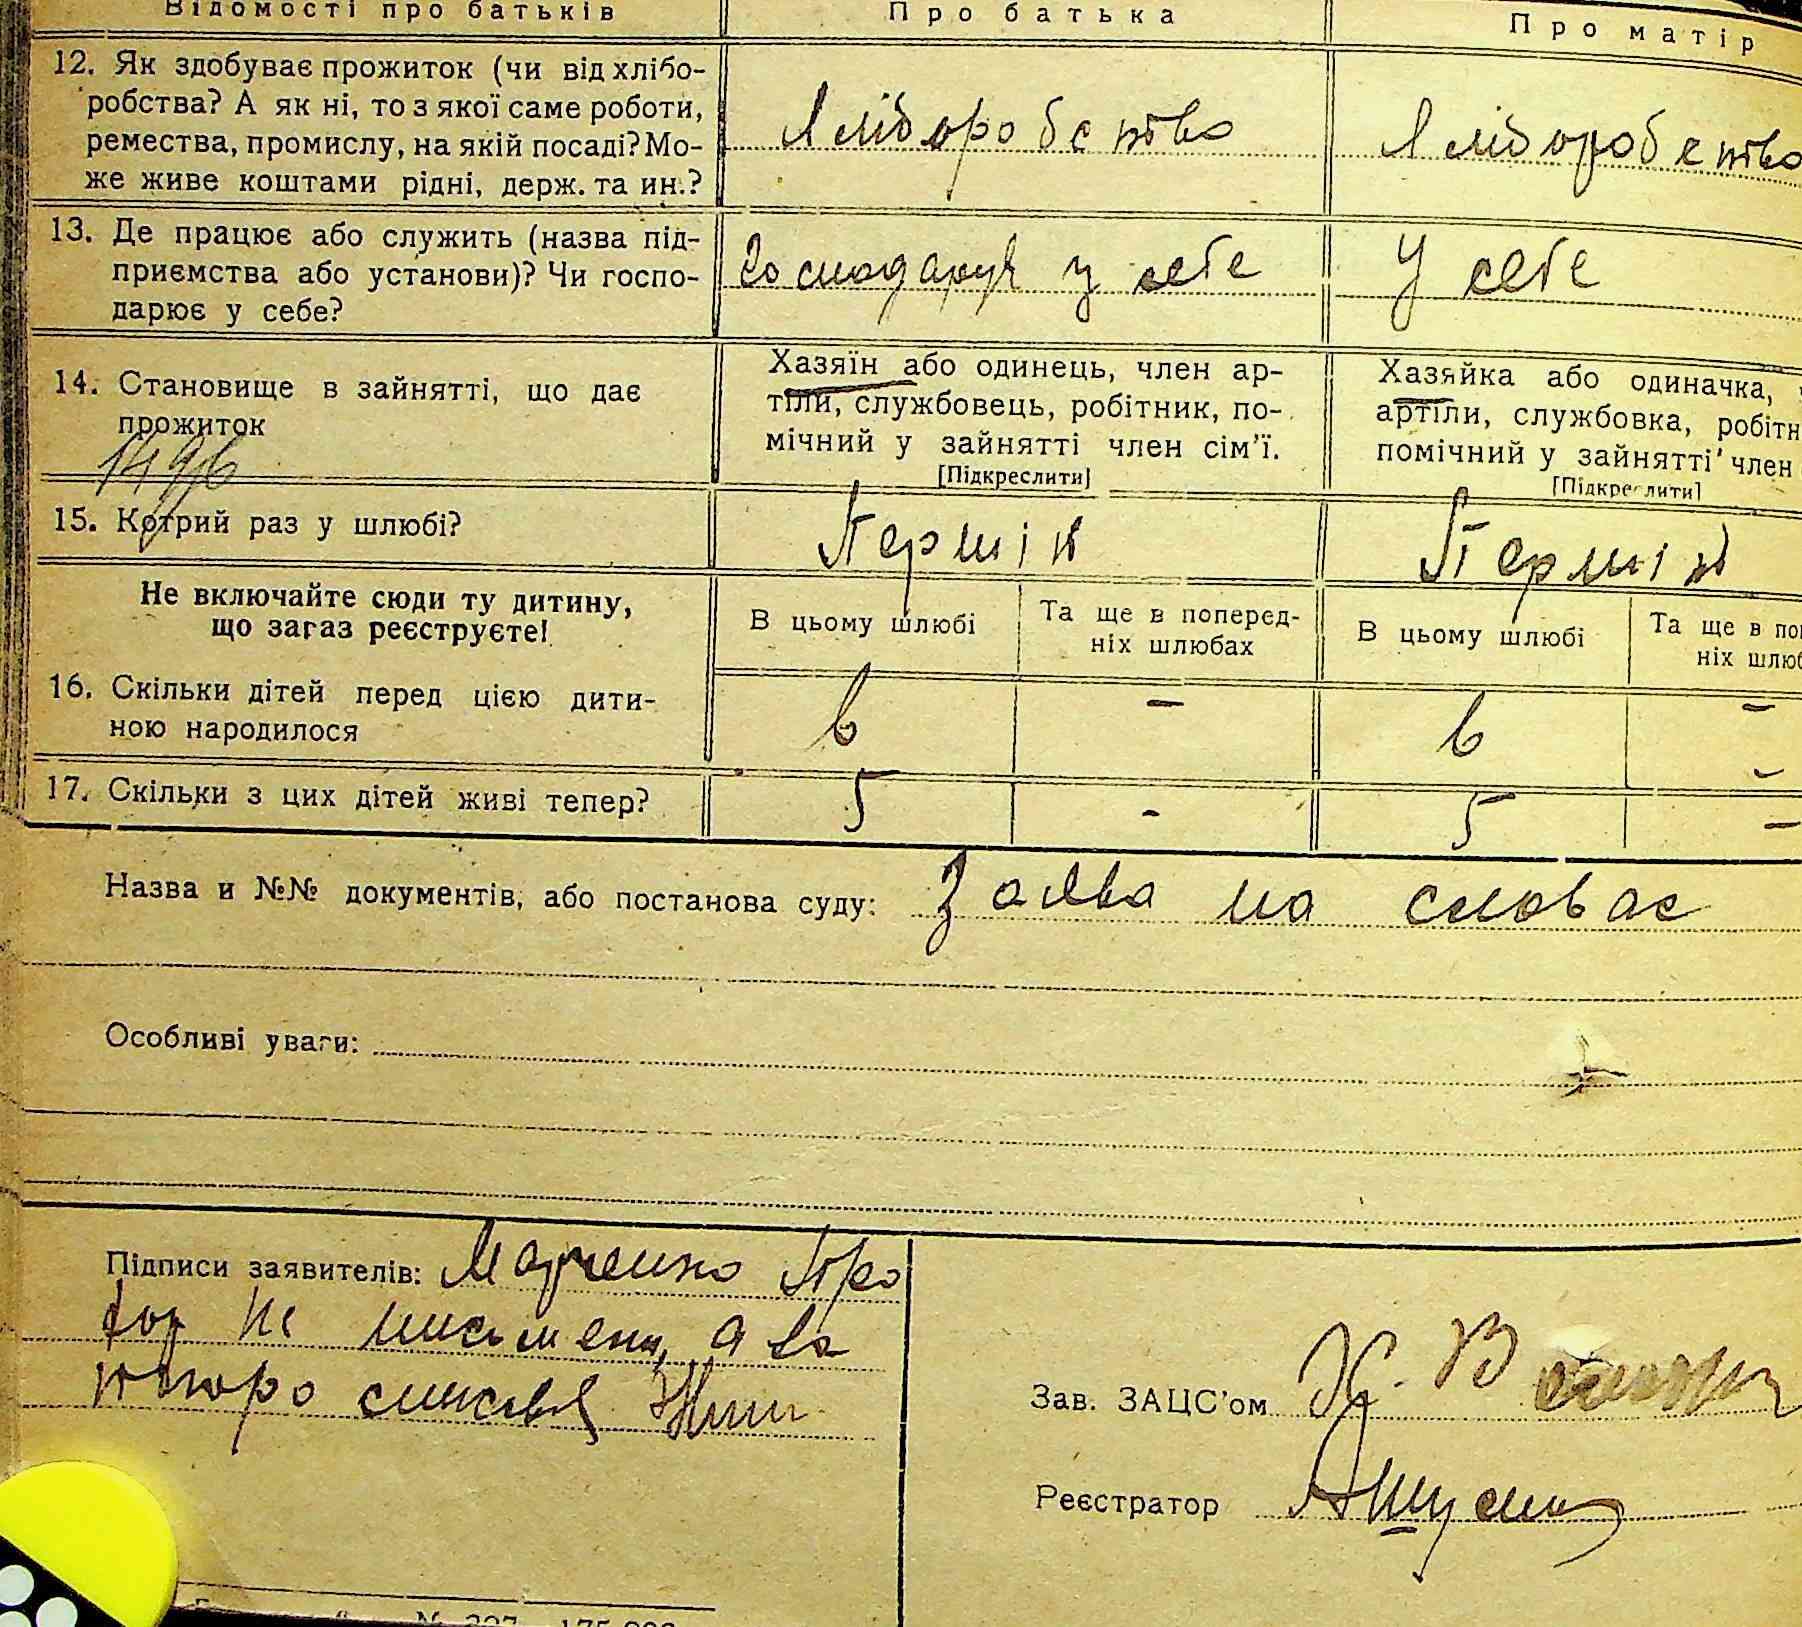 Відомості про батьків
Про батька
Про матір
12. Як здобуває прожиток (чи від хлібо-
робства? А як ні, то з якої саме роботи,
ремества, промислу, на якій посаді? Мо-
же живе коштами рідні, держ. та ин.?
Хліборобство
Хліборобство
13. Де працює або служить (назва під-
приємства або установи)? Чи госпо-
дарює у себе?
у себе
У себе
14. Становище в зайнятті, що дає
прожиток
Хазяїн або одинець, член ар-
тіли, службовець, робітник, по-
мічний у зайнятті член сім'ї.
[Підкреслити]
Хазяйка або одиначка,
артіли, службовка, робітн
помічний у зайнятті член
[Підкреслити]
15. Котрий раз у шлюбі?
Першій
Першій
Не включайте сюди ту дитину,
що зараз реєструєте!
В цьому шлюбі
Та ще в поперед-
ніх шлюбах
В цьому шлюбі
Та ще в по
ніх шлюб
16. Скільки дітей перед цією дити-
ною народилося
6
-
6
-
17. Скільки з цих дітей живі тепер?
5
-
5
-
Назва и №№ документів, або постанова суду: Заява на словах
Особливі уваги:
Підписи заявителів: Марченко Про
фор не письмен, а за
Зав. ЗАЦС'ом
Реєстратор